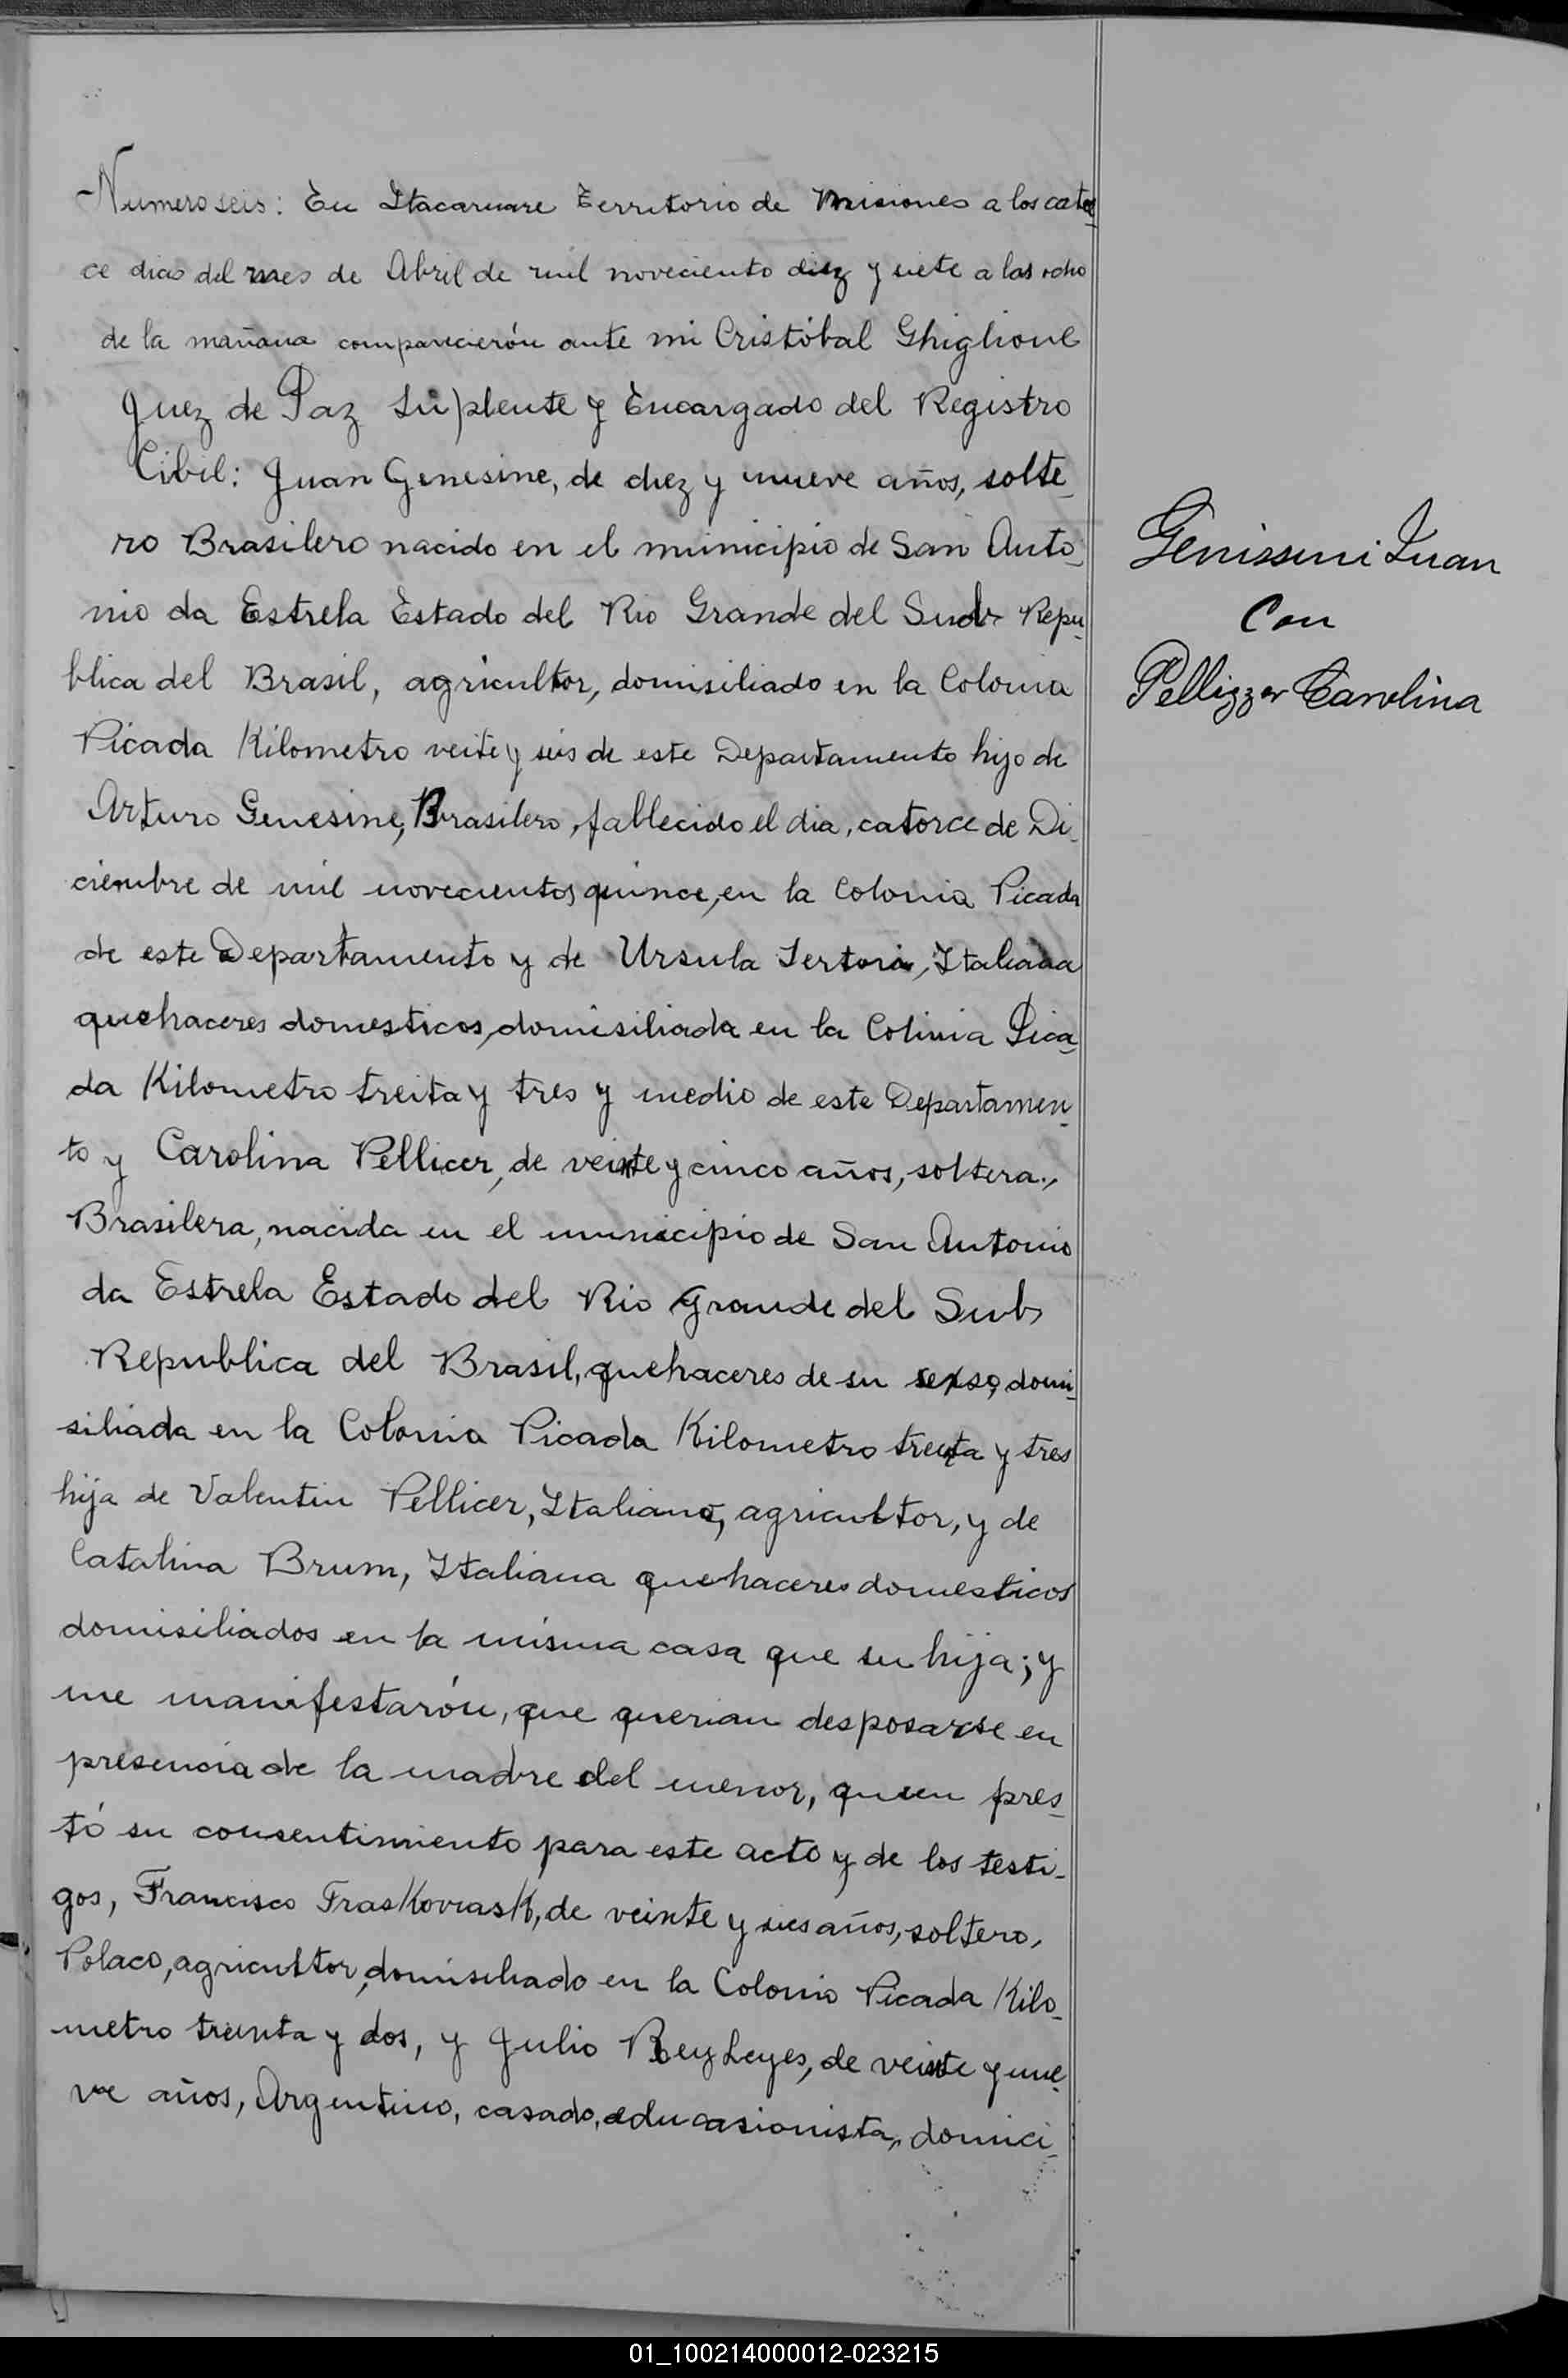 Numero seis: En Itacaruare Territorio de Misiones a los cator
ce dias del mes de Abril de mil noveciento diez y siete a las ocho
de la mañana comparecierón ante mi Cristóbal Ghiglione
Juez de Paz Suplente y Encargado del Registro
Cibil: Juan Genesine, de diez y nueve años, solte_
ro Brasilero nacido en el municipio de San Anto_
nio da Estrela Estado del Rio Grande del Sud Repu_
blica del Brasil, agricultor, domisiliado en la Colonia
Picada Kilometro veite y seis de este Departamento hijo de
Arturo Genesine, Brasilero, fallecido el dia, catorce de Di_
ciembre de mil novecientos quince, en la Colonia Picada
de este Departamento y de Ursula Sertori, Italiana
quehaceres domesticos, domisiliada en la Colinia Pica_
da Kilometro treita y tres y medio de este Departamen_
to y Carolina Pellicer, de veinte y cinco años, soltera.,
Brasilera, nacida en el municipio de San Antonio
da Estrela Estado del Rio Grande del Sub
Republica del Brasil, quehaceres de su sexso, domi_
siliada en la Colonia Picada Kilometro treinta y tres
hija de Valentin Pellicer, Italiano, agricultor, y de
Catalina Brum, Italiana quehaceres domesticos
domisiliados en la misma casa que su hija; y
me manifestarón, que querian desposarse en
presencia de la madre del menor, quien pres_
tó su consentimiento para este acto y de los testi_
gos, Francisco Fraskoviask, de veinte y seis años, soltero,
Polaco, agricultor, domisiliado en la Colonio Picada Kilo_
metro treinta y dos, y Julio Rey Leyes, de veinte y nue_
ve años, Argentino, casado, educasionista, domici_
Genissini Juan
Con
Pellizzer Carolina
01_100214000012-023215